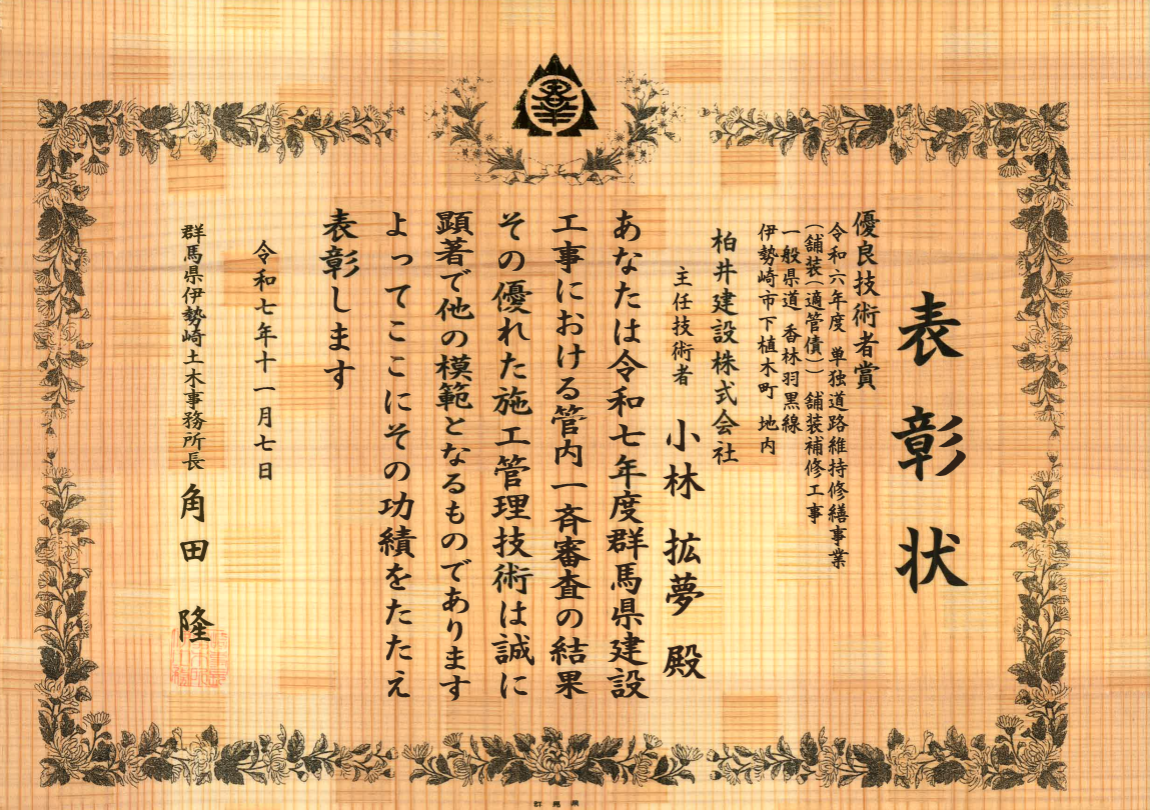 表彰状
優良技術者賞
令和六年度 単独道路維持修繕事業
(舗装(適管債)) 舗装補修工事
一般県道 香林羽黒線
伊勢崎市下植木町 地内
柏井建設株式会社
主任技術者 小林 拡夢 殿
あなたは令和七年度群馬県建設
工事における管内一斉審査の結果
その優れた施工管理技術は誠に
顕著で他の模範となるものであります
よってここにその功績をたたえ
表彰します
令和七年十一月七日
群馬県伊勢崎土木事務所長 角田 隆
群馬県